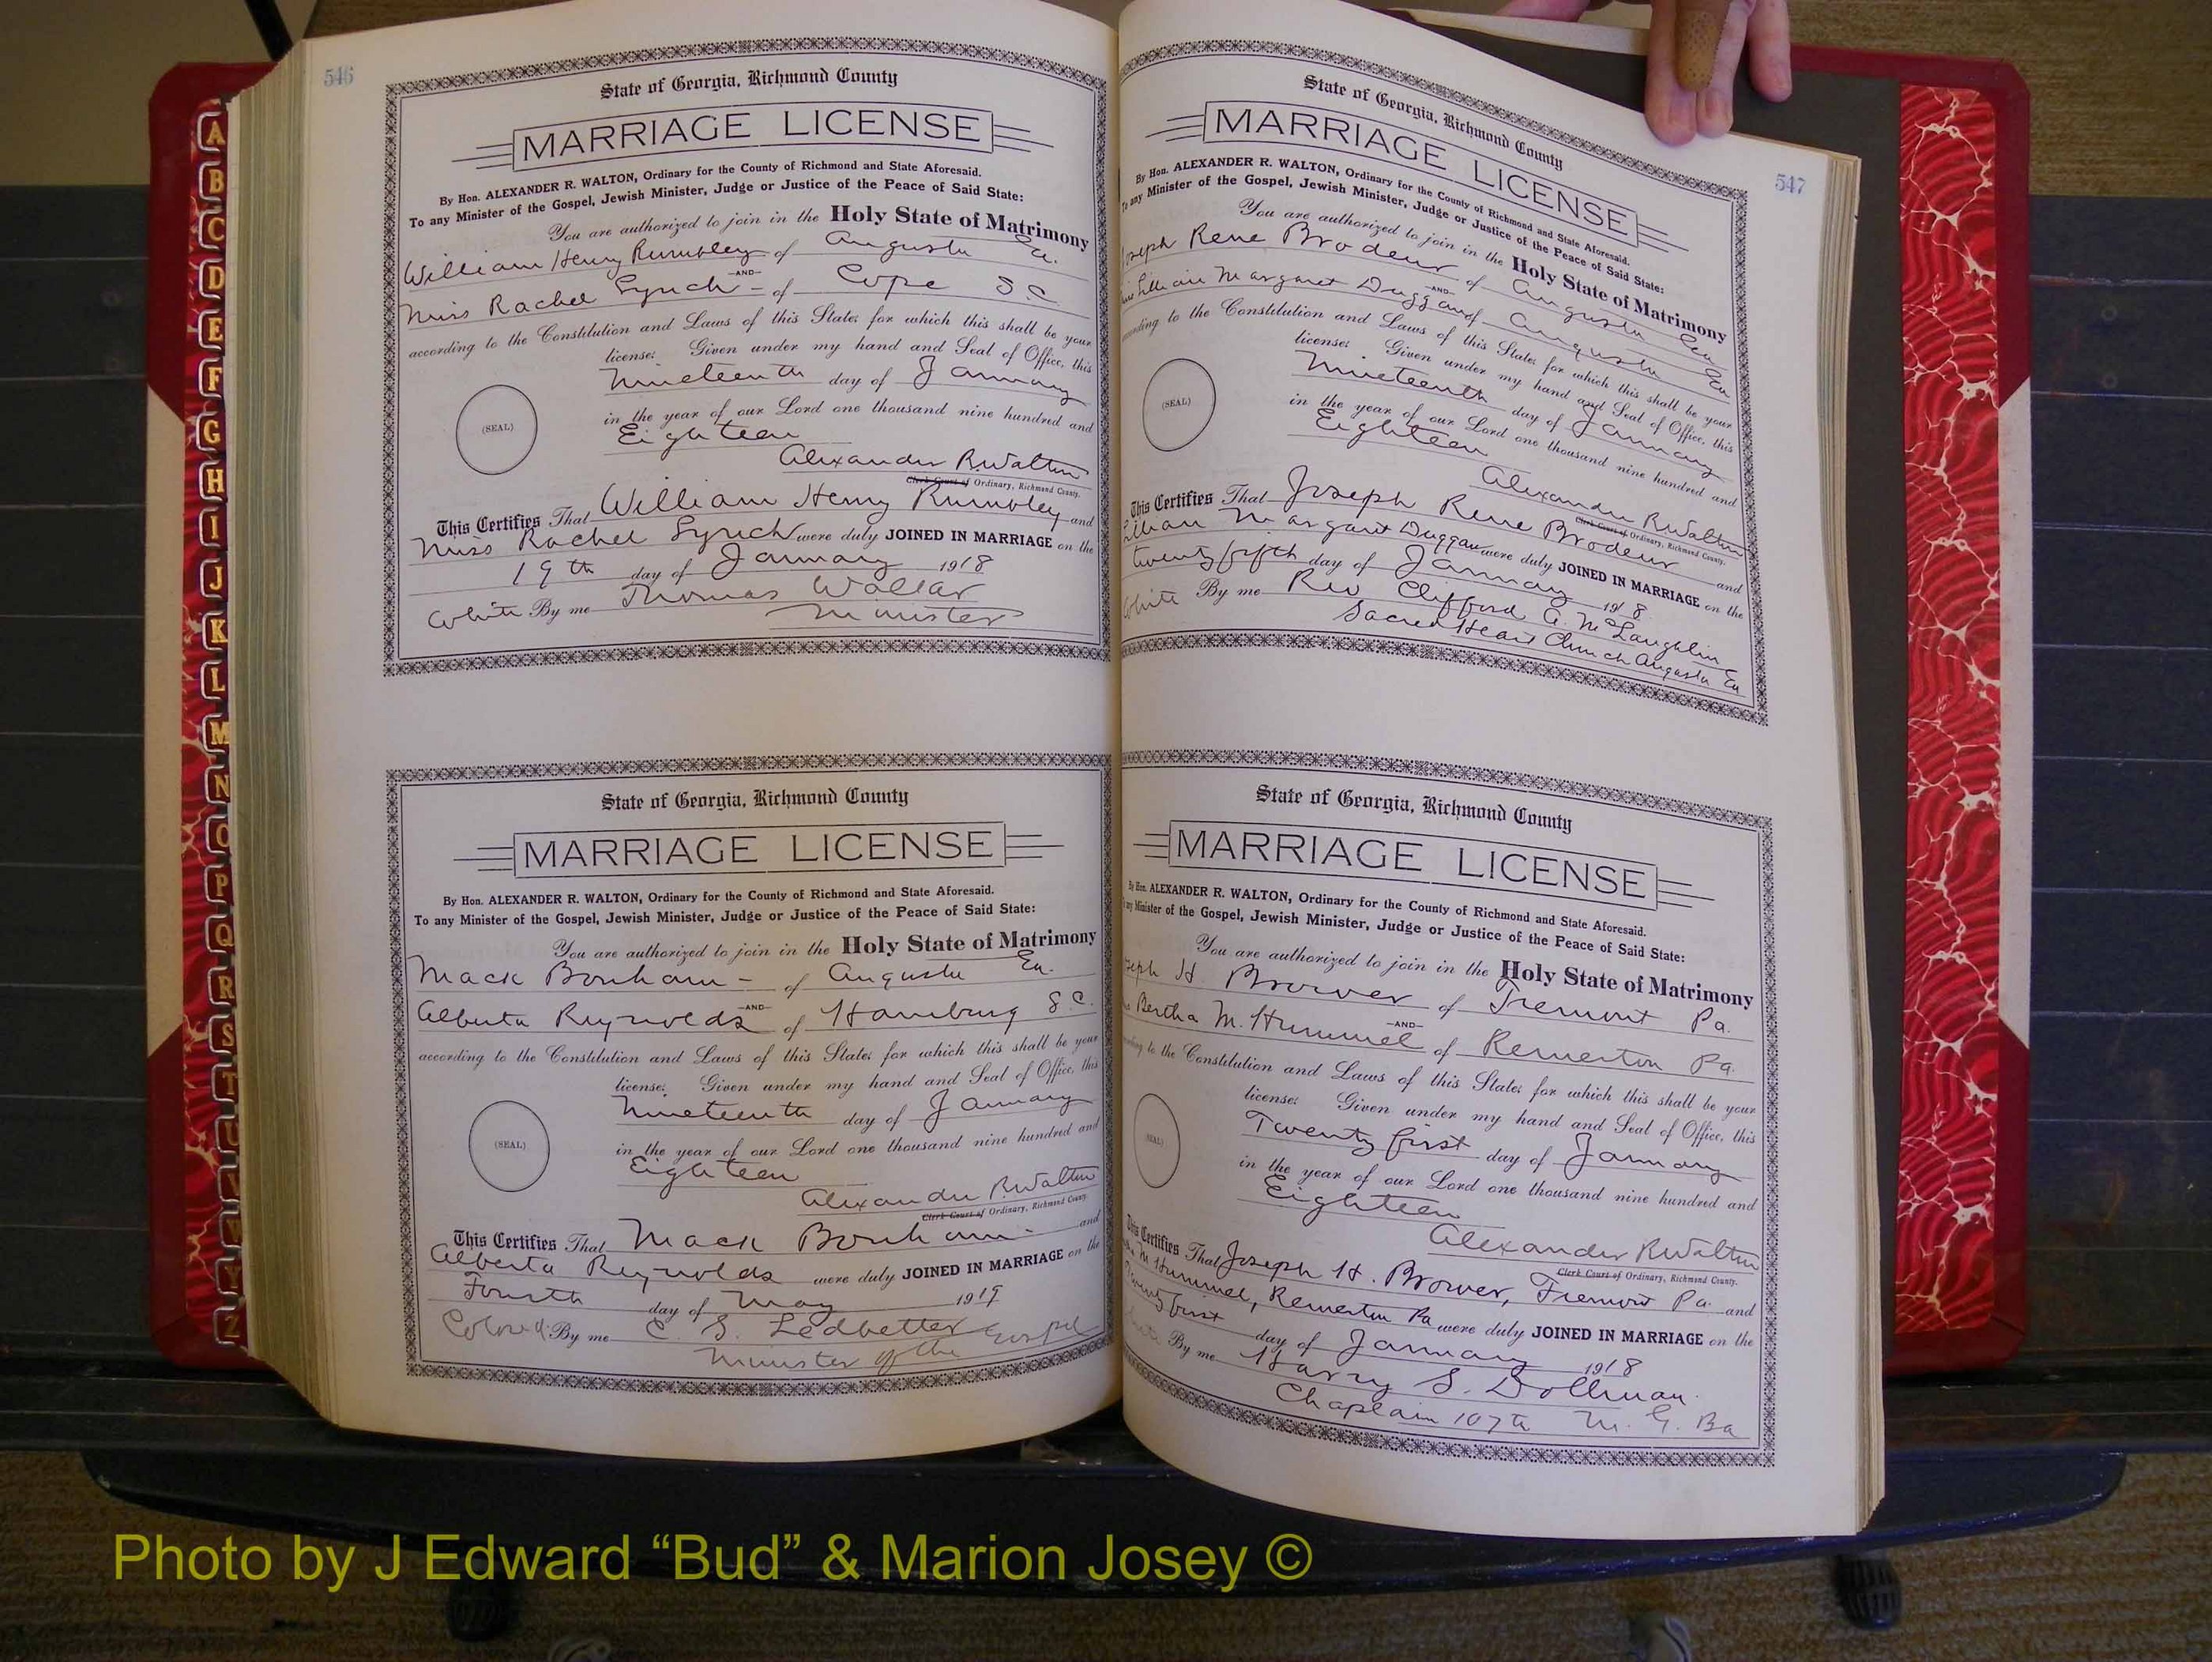 546
State of Georgia, Richmond County
MARRIAGE LICENSE
By Hon. ALEXANDER R. WALTON, Ordinary for the County of Richmond and State Aforesaid.
To any Minister of the Gospel, Jewish Minister, Judge or Justice of the Peace of Said State:
You are authorized to join in the Holy State of Matrimony
William Henry Rumbley of Augusta Ga.
AND
Miss Rachel Lynch of Cope S.C.
according to the Constitution and Laws of this State; for which this shall be your
license. Given under my hand and Seal of Office, this
Nineteenth day of January
in the year of our Lord one thousand nine hundred and
(SEAL)
Eighteen
Alexander R. Walton
Clerk Court of Ordinary, Richmond County.
This Certifies That William Henry Rumbley and
Miss Rachel Lynch were duly JOINED IN MARRIAGE on the
19th day of January 1918
White By me Thomas Wallar
Minister
State of Georgia, Richmond County
MARRIAGE LICENSE
By Hon. ALEXANDER R. WALTON, Ordinary for the County of Richmond and State Aforesaid.
To any Minister of the Gospel, Jewish Minister, Judge or Justice of the Peace of Said State:
You are authorized to join in the Holy State of Matrimony
Mack Bonham - of Augusta Ga.
AND
Alberta Reynolds of Hamburg S.C.
according to the Constitution and Laws of this State; for which this shall be your
license. Given under my hand and Seal of Office, this
Nineteenth day of January
in the year of our Lord one thousand nine hundred and
(SEAL)
Eighteen
Alexander R. Walton
Clerk Court of Ordinary, Richmond County.
This Certifies That Mack Bonham and
Alberta Reynolds were duly JOINED IN MARRIAGE on the
Fourth day of May 1919
Colored By me C. S. Ledbetter Gospel
Minister of the
547
State of Georgia, Richmond County
MARRIAGE LICENSE
By Hon. ALEXANDER R. WALTON, Ordinary for the County of Richmond and State Aforesaid.
To any Minister of the Gospel, Jewish Minister, Judge or Justice of the Peace of Said State:
You are authorized to join in the Holy State of Matrimony
Joseph Rene Brodeur of Augusta Ga
AND
Lillian Margaret Duggan of Augusta Ga
according to the Constitution and Laws of this State; for which this shall be your
license. Given under my hand and Seal of Office, this
Nineteenth day of January
in the year of our Lord one thousand nine hundred and
(SEAL)
Eighteen
Alexander R. Walton
Clerk Court of Ordinary, Richmond County.
This Certifies That Joseph Rene Brodeur and
Lillian Margaret Duggan were duly JOINED IN MARRIAGE on the
twenty fifth day of January 1918
White By me Rev Clifford A. McLaughlin
Sacred Heart Church Augusta Ga
State of Georgia, Richmond County
MARRIAGE LICENSE
By Hon. ALEXANDER R. WALTON, Ordinary for the County of Richmond and State Aforesaid.
any Minister of the Gospel, Jewish Minister, Judge or Justice of the Peace of Said State:
You are authorized to join in the Holy State of Matrimony
Joseph H. Brower of Tremont Pa.
AND
Bertha M. Hummel of Remerton Pa.
according to the Constitution and Laws of this State; for which this shall be your
license. Given under my hand and Seal of Office, this
Twenty first day of January
in the year of our Lord one thousand nine hundred and
(SEAL)
Eighteen
Alexander R. Walton
Clerk Court of Ordinary, Richmond County.
This Certifies That Joseph H. Brower, Tremont Pa. and
M Hummel, Remerton Pa were duly JOINED IN MARRIAGE on the
Twenty first day of January 1918
By me Harry S. Dollman.
Chaplain 107th M. G. Ba
A
B
C
D
E
F
G
H
I
J
K
L
M
N
O
P
Q
R
S
T
U
V
W
Y
Z
Photo by J Edward “Bud” & Marion Josey ©